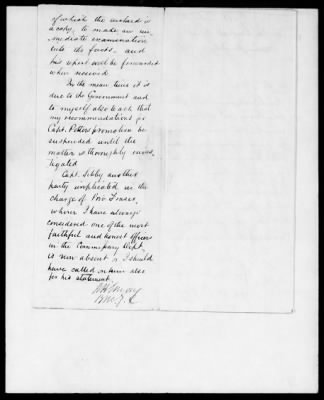 of which the enclosed is
a copy, to make an im-
mediate examination
into the facts, and
his report will be forwarded
when received
In the mean time it is
due to the Government and
to myself also to ask that
my recommendations for
Capt. Potters promotion be
suspended until the
matter is thoroughly inves
tigated
Capt. Sibley another
party implicated in the
charge of Priv
whom I have always
considered one of the most
faithful and honest officers
in the Commissary Dept.
is now absent or I should
have called on him also
for his statement.